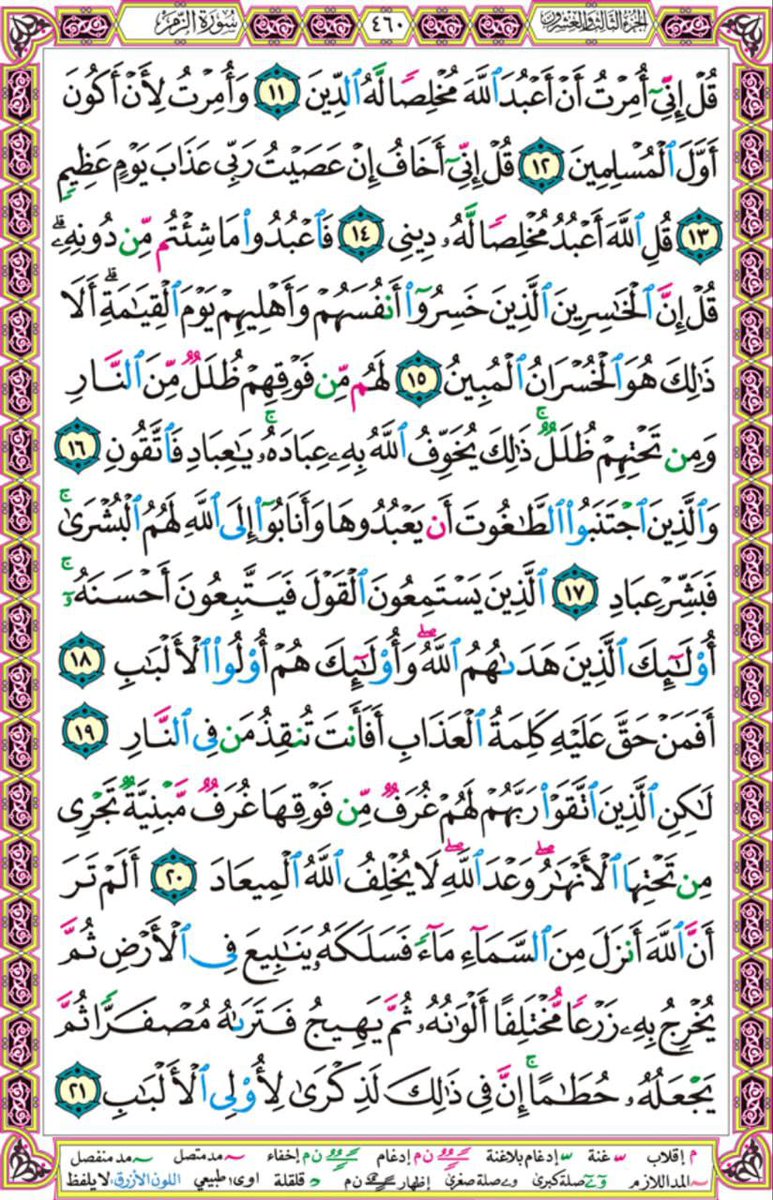 الجزء الثالث والعشرون ٤٦٠ سورة الزمر
قُلۡ إِنِّيٓ أُمِرۡتُ أَنۡ أَعۡبُدَ ٱللَّهَ مُخۡلِصٗا لَّهُ ٱلدِّينَ ١١ وَأُمِرۡتُ لِأَنۡ أَكُونَ
أَوَّلَ ٱلۡمُسۡلِمِينَ ١٢ قُلۡ إِنِّيٓ أَخَافُ إِنۡ عَصَيۡتُ رَبِّي عَذَابَ يَوۡمٍ عَظِيمٖ
١٣ قُلِ ٱللَّهَ أَعۡبُدُ مُخۡلِصٗا لَّهُۥ دِينِي ١٤ فَٱعۡبُدُواْ مَا شِئۡتُم مِّن دُونِهِۦۗ
قُلۡ إِنَّ ٱلۡخَٰسِرِينَ ٱلَّذِينَ خَسِرُوٓاْ أَنفُسَهُمۡ وَأَهۡلِيهِمۡ يَوۡمَ ٱلۡقِيَٰمَةِۗ أَلَا
ذَٰلِكَ هُوَ ٱلۡخُسۡرَانُ ٱلۡمُبِينُ ١٥ لَهُم مِّن فَوۡقِهِمۡ ظُلَلٞ مِّنَ ٱلنَّارِ
وَمِن تَحۡتِهِمۡ ظُلَلٞۚ ذَٰلِكَ يُخَوِّفُ ٱللَّهُ بِهِۦ عِبَادَهُۥۚ يَٰعِبَادِ فَٱتَّقُونِ ١٦
وَٱلَّذِينَ ٱجۡتَنَبُواْ ٱلطَّٰغُوتَ أَن يَعۡبُدُوهَا وَأَنَابُوٓاْ إِلَى ٱللَّهِ لَهُمُ ٱلۡبُشۡرَىٰۚ
فَبَشِّرۡ عِبَادِ ١٧ ٱلَّذِينَ يَسۡتَمِعُونَ ٱلۡقَوۡلَ فَيَتَّبِعُونَ أَحۡسَنَهُۥٓۚ
أُوْلَٰٓئِكَ ٱلَّذِينَ هَدَىٰهُمُ ٱللَّهُۖ وَأُوْلَٰٓئِكَ هُمۡ أُوْلُواْ ٱلۡأَلۡبَٰبِ ١٨
أَفَمَنۡ حَقَّ عَلَيۡهِ كَلِمَةُ ٱلۡعَذَابِ أَفَأَنتَ تُنقِذُ مَن فِي ٱلنَّارِ ١٩
لَٰكِنِ ٱلَّذِينَ ٱتَّقَوۡاْ رَبَّهُمۡ لَهُمۡ غُرَفٞ مِّن فَوۡقِهَا غُرَفٞ مَّبۡنِيَّةٞ تَجۡرِي
مِن تَحۡتِهَا ٱلۡأَنۡهَٰرُۖ وَعۡدَ ٱللَّهِ لَا يُخۡلِفُ ٱللَّهُ ٱلۡمِيعَادَ ٢٠ أَلَمۡ تَرَ
أَنَّ ٱللَّهَ أَنزَلَ مِنَ ٱلسَّمَآءِ مَآءٗ فَسَلَكَهُۥ يَنَٰبِيعَ فِي ٱلۡأَرۡضِ ثُمَّ
يُخۡرِجُ بِهِۦ زَرۡعٗا مُّخۡتَلِفًا أَلۡوَٰنُهُۥ ثُمَّ يَهِيجُ فَتَرَىٰهُ مُصۡفَرّٗا ثُمَّ
يَجۡعَلُهُۥ حُطَٰمًاۚ إِنَّ فِي ذَٰلِكَ لَذِكۡرَىٰ لِأُوْلِي ٱلۡأَلۡبَٰبِ ٢١
م إقلاب غنة إدغام بلاغنة ن م إدغام ن م إخفاء مد متصل مد منفصل
المد اللازم صلة كبرى صلة صغرى إظهار ن م قلقلة اوى طبيعي اللون الأزرق لا يلفظ